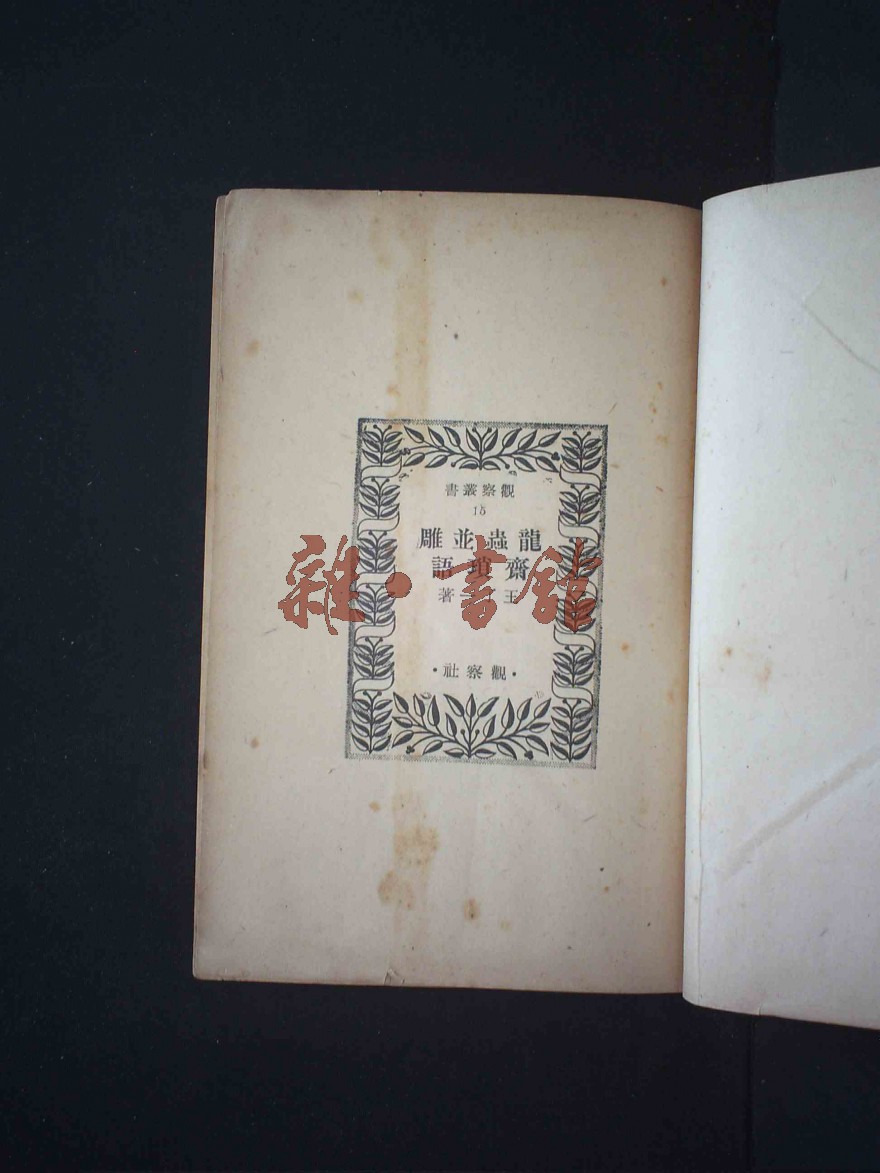 觀察叢書
15
龍蟲並雕
齋瑣語
王 著
·觀察社·
雜·書館